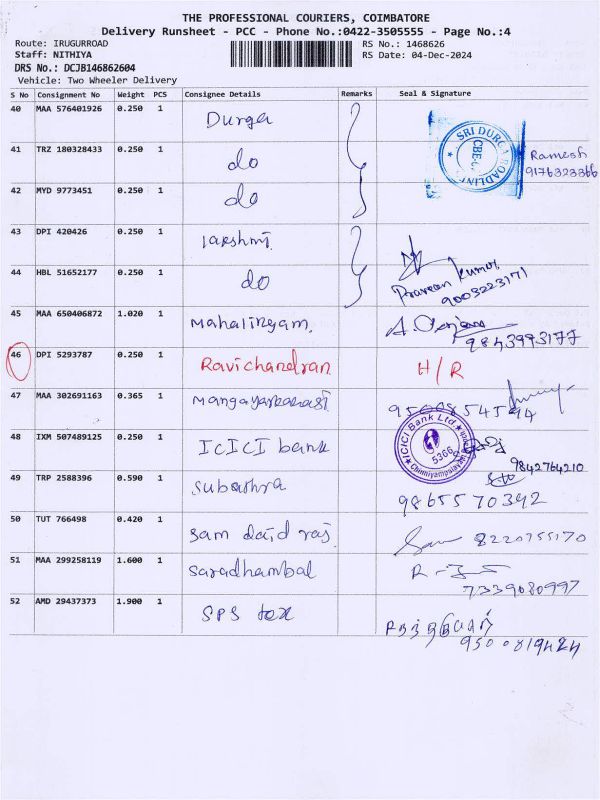 THE PROFESSIONAL COURIERS, COIMBATORE
Delivery Runsheet - PCC - Phone No.:0422-3505555 - Page No.:4
Route: IRUGURROAD
RS No.: 1468626
Staff: NITHIYA
RS Date: 04-Dec-2024
DRS No.: DCJB146862604
Vehicle: Two Wheeler Delivery
S No Consignment No Weight PCS Consignee Details Remarks Seal & Signature
40 MAA 576401926 0.250 1 Durga
SRI DURGA ROADLINES
CBE
Ramesh
9176323366
41 TRZ 180328433 0.250 1 do
42 MYD 9773451 0.250 1 do
43 DPI 420426 0.250 1 Lakshmi
44 HBL 51652177 0.250 1 do
Praveen Kumar
9003223171
45 MAA 650406872 1.020 1 Mahalingam
9843993177
46 DPI 5293787 0.250 1 Ravichandran H/R
47 MAA 302691163 0.365 1 Mangayarkarasi 9500854544
48 IXM 507489125 0.250 1 ICICI bank
ICICI Bank Ltd
5366
9842764210
49 TRP 2588396 0.590 1 Subathra 9865570342
50 TUT 766498 0.420 1 Sam david raj 8220755170
51 MAA 299258119 1.600 1 Saradhambal
7339080997
52 AMD 29437373 1.900 1 SPS tex
9500819424